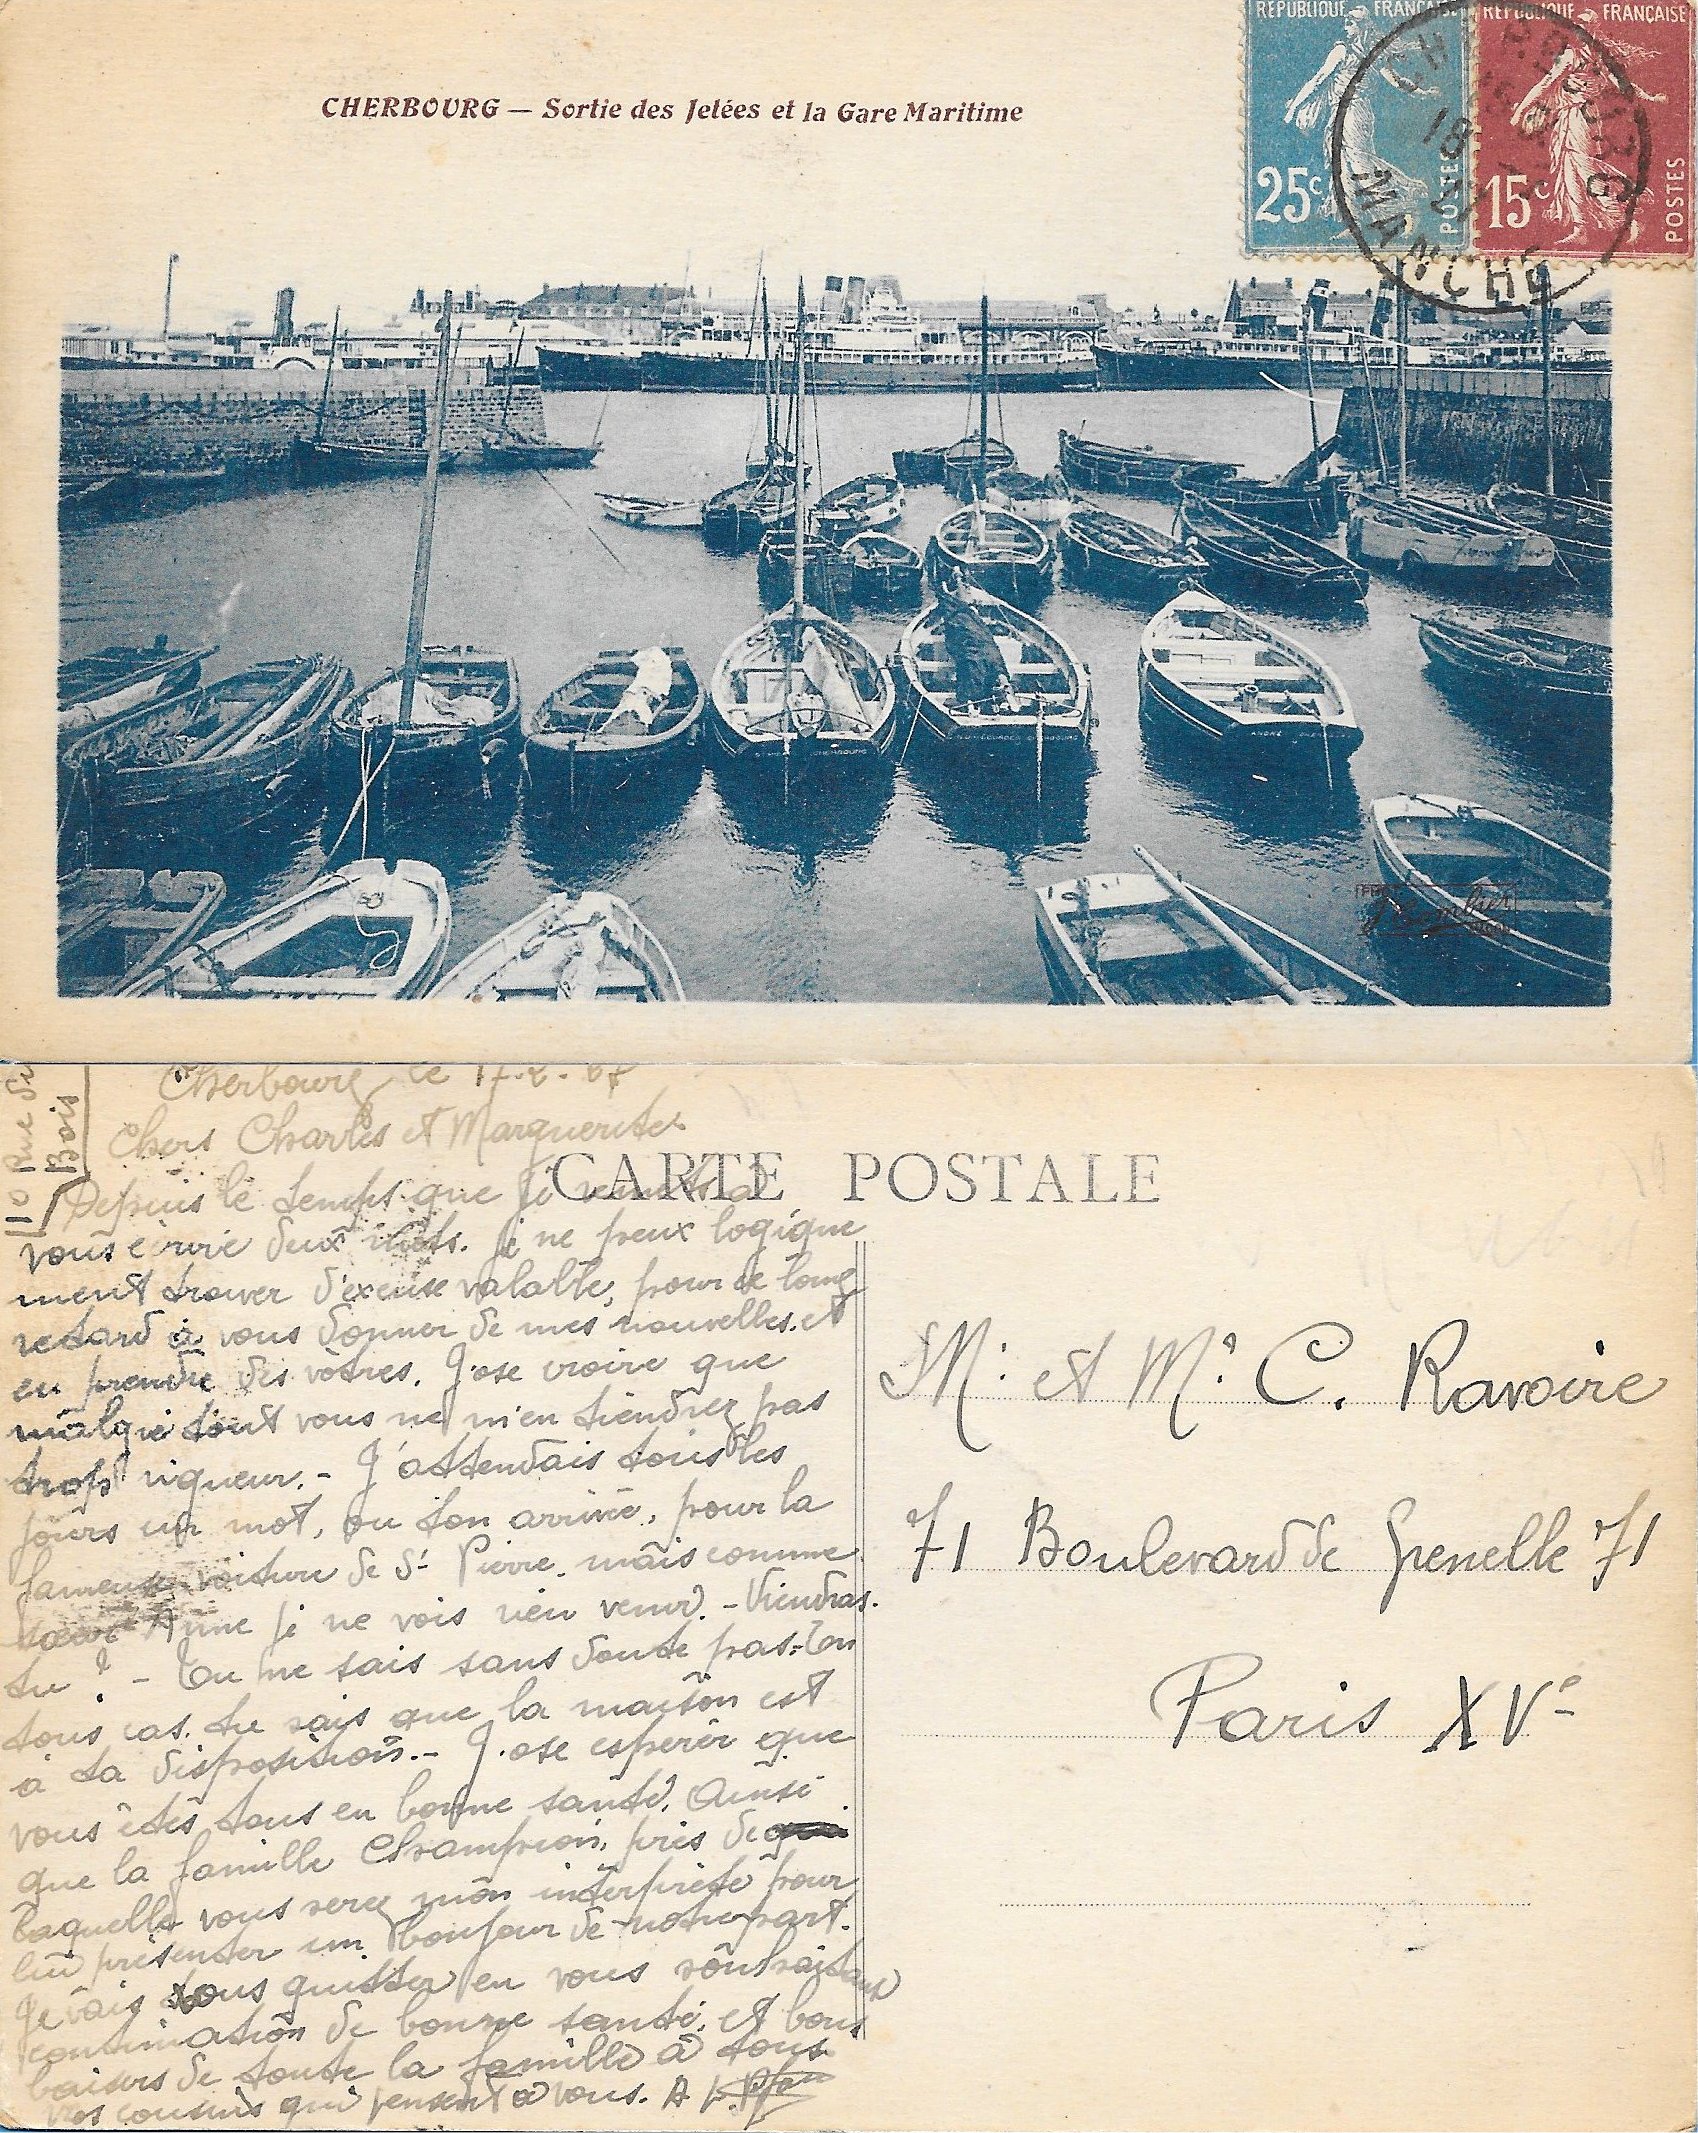 CHERBOURG — Sortie des Jetées et la Gare Maritime
REPUBLIQUE FRANÇAISE
25c
POSTES
REPUBLIQUE FRANÇAISE
15c
POSTES
CHERBOURG
18
MANCHE
10 Rue du
Bois
Cherbourg le 17.2.27
Chers Charles et Marguerite
CARTE POSTALE
Depuis le temps que je remets à
vous écrire deux mots. Je ne peux logique
ment trouver d'excuse valable, pour ce long
retard à vous donner de mes nouvelles et
en prendre des vôtres. J'ose croire que
malgré tout vous ne m'en tiendrez pas
trop rigueur. - J'attendais tous les
jours un mot, ou ton arrivée, pour la
fameuse voiture de St Pierre. mais comme
soeur Anne je ne vois rien venir. - Viendras.
tu ? - Tu ne sais sans doute pas. - En
tous cas. tu sais que la maison est
à ta disposition. - J'ose espérer que
vous êtes tous en bonne santé. Ainsi
que la famille Champion, près de
laquelle vous serez mon interprète pour
lui présenter un bonjour de notre part.
Je vais vous quitter en vous souhaitant
continuation de bonne santé, et bons
baisers de toute la famille à tous
vos cousins qui pensent à vous. A
M. et Me. C. Ravoire
71 Boulevard de Grenelle 71
Paris XVe